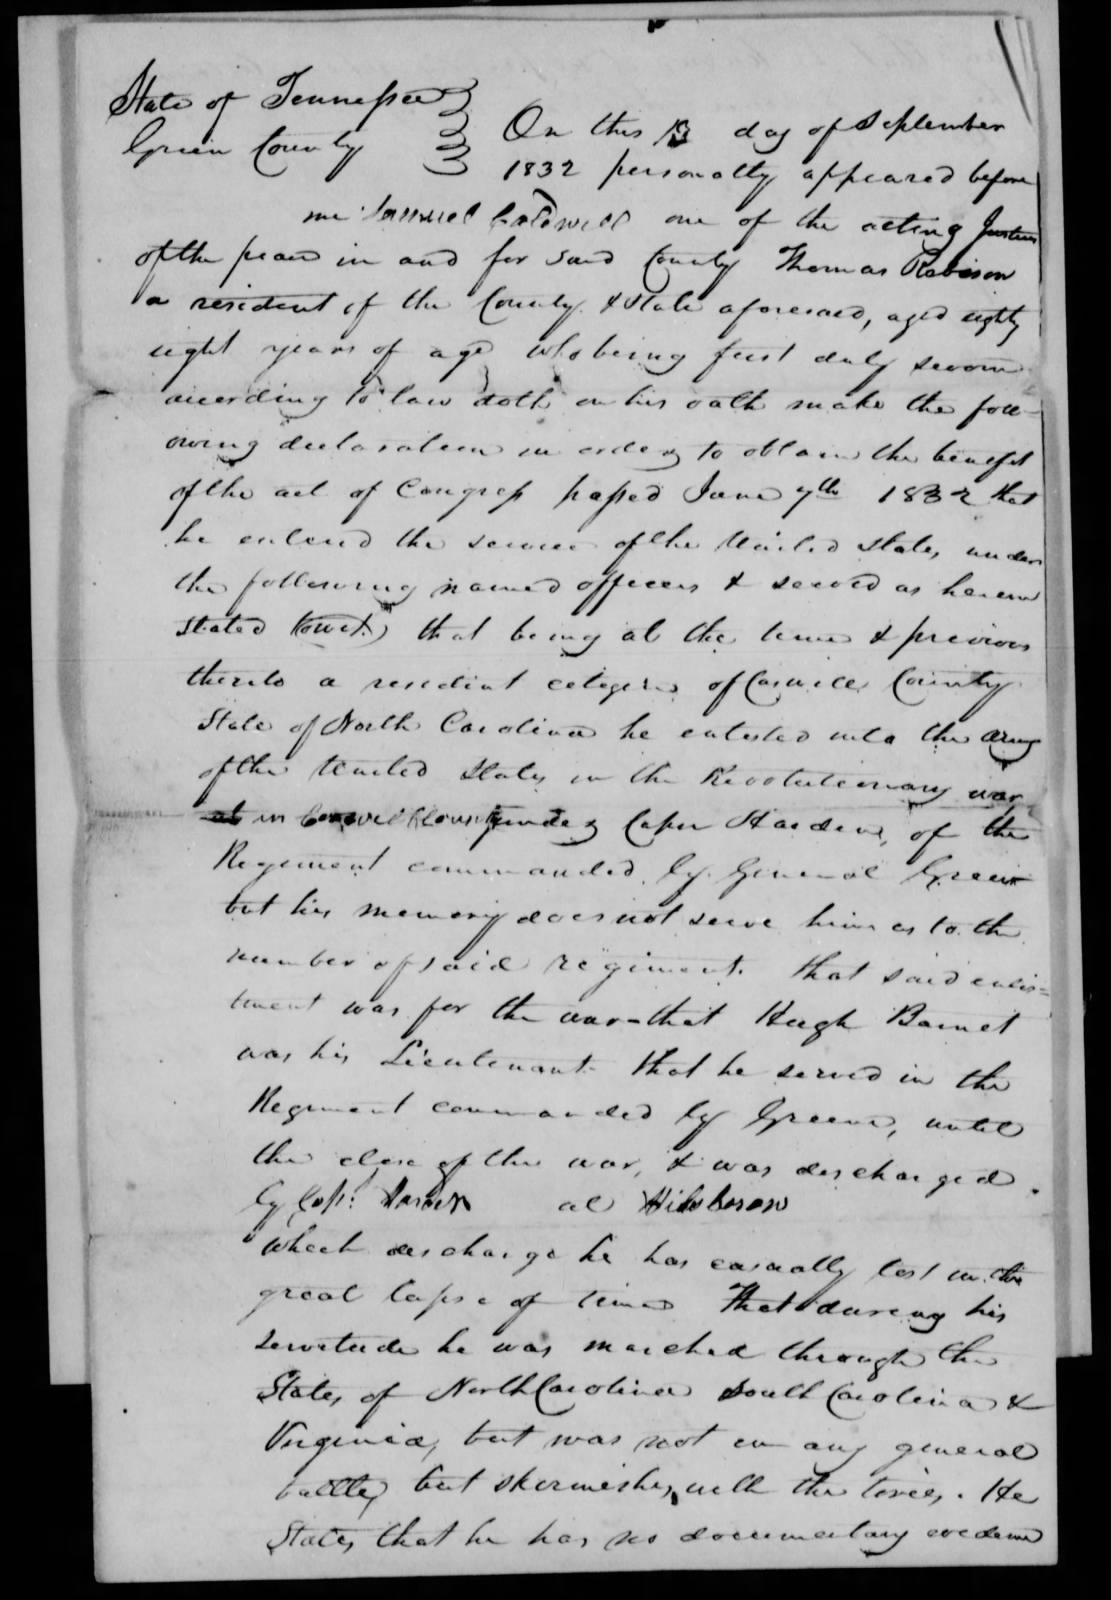 State of Tennessee
Green County } On this 13 day of September
1832 personally appeared before
me Samuel Caldwell one of the acting Justices
of the peace in and for said County Thomas Robison
a resident of the County & State aforesaid, aged eighty
eight years of age who being first duly sworn
according to law doth on his oath make the foll-
owing declaration in order to obtain the benefit
of the act of Congress passed June 7th 1832 that
he entered the service of the United States under
the following named officers & served as herein
stated (towit.) that being at the time & previous
thereto a resident citizen of Caswell County
State of North Carolina he enlisted into the army
of the United States in the Revolutionary war
in Caswell County under Capn Harden, of the
Regiment commanded by General Green
but his memory does not serve him as to the
number of said regiment. that said enlis=
tment was for the war - that Hugh Barnet
was his Lieutenant - that he served in the
Regiment commanded by Greene, until
the close of the war, & was discharged
by Capt. Harden at Hilsboron
which discharge he has casually lost in the
great lapse of time That during his
servitude he was marched through the
States of North Carolina South Carolina &
Virginia, but was not in any general
battle, but skirmishes with the tories. He
States that he has no documentary evidence